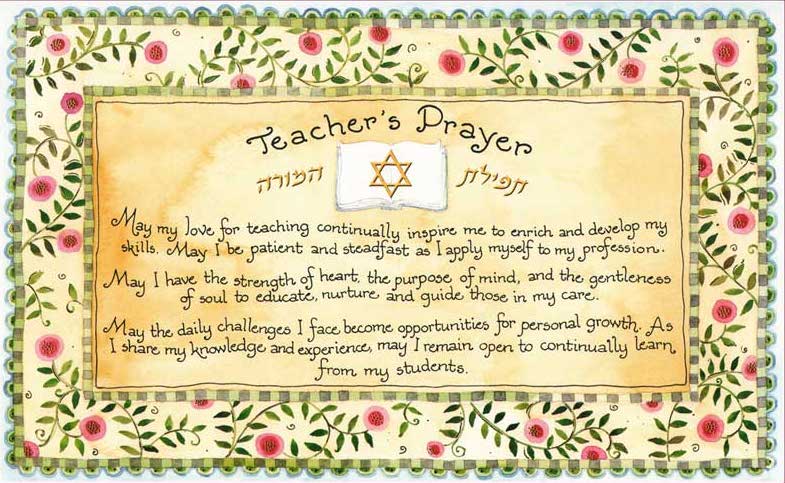 Teacher's Prayer
תפילת המורה
May my love for teaching continually inspire me to enrich and develop my
skills. May I be patient and steadfast as I apply myself to my profession.
May I have the strength of heart, the purpose of mind, and the gentleness
of soul to educate, nurture and guide those in my care.
May the daily challenges I face become opportunities for personal growth. As
I share my knowledge and experience, may I remain open to continually learn
from my students.